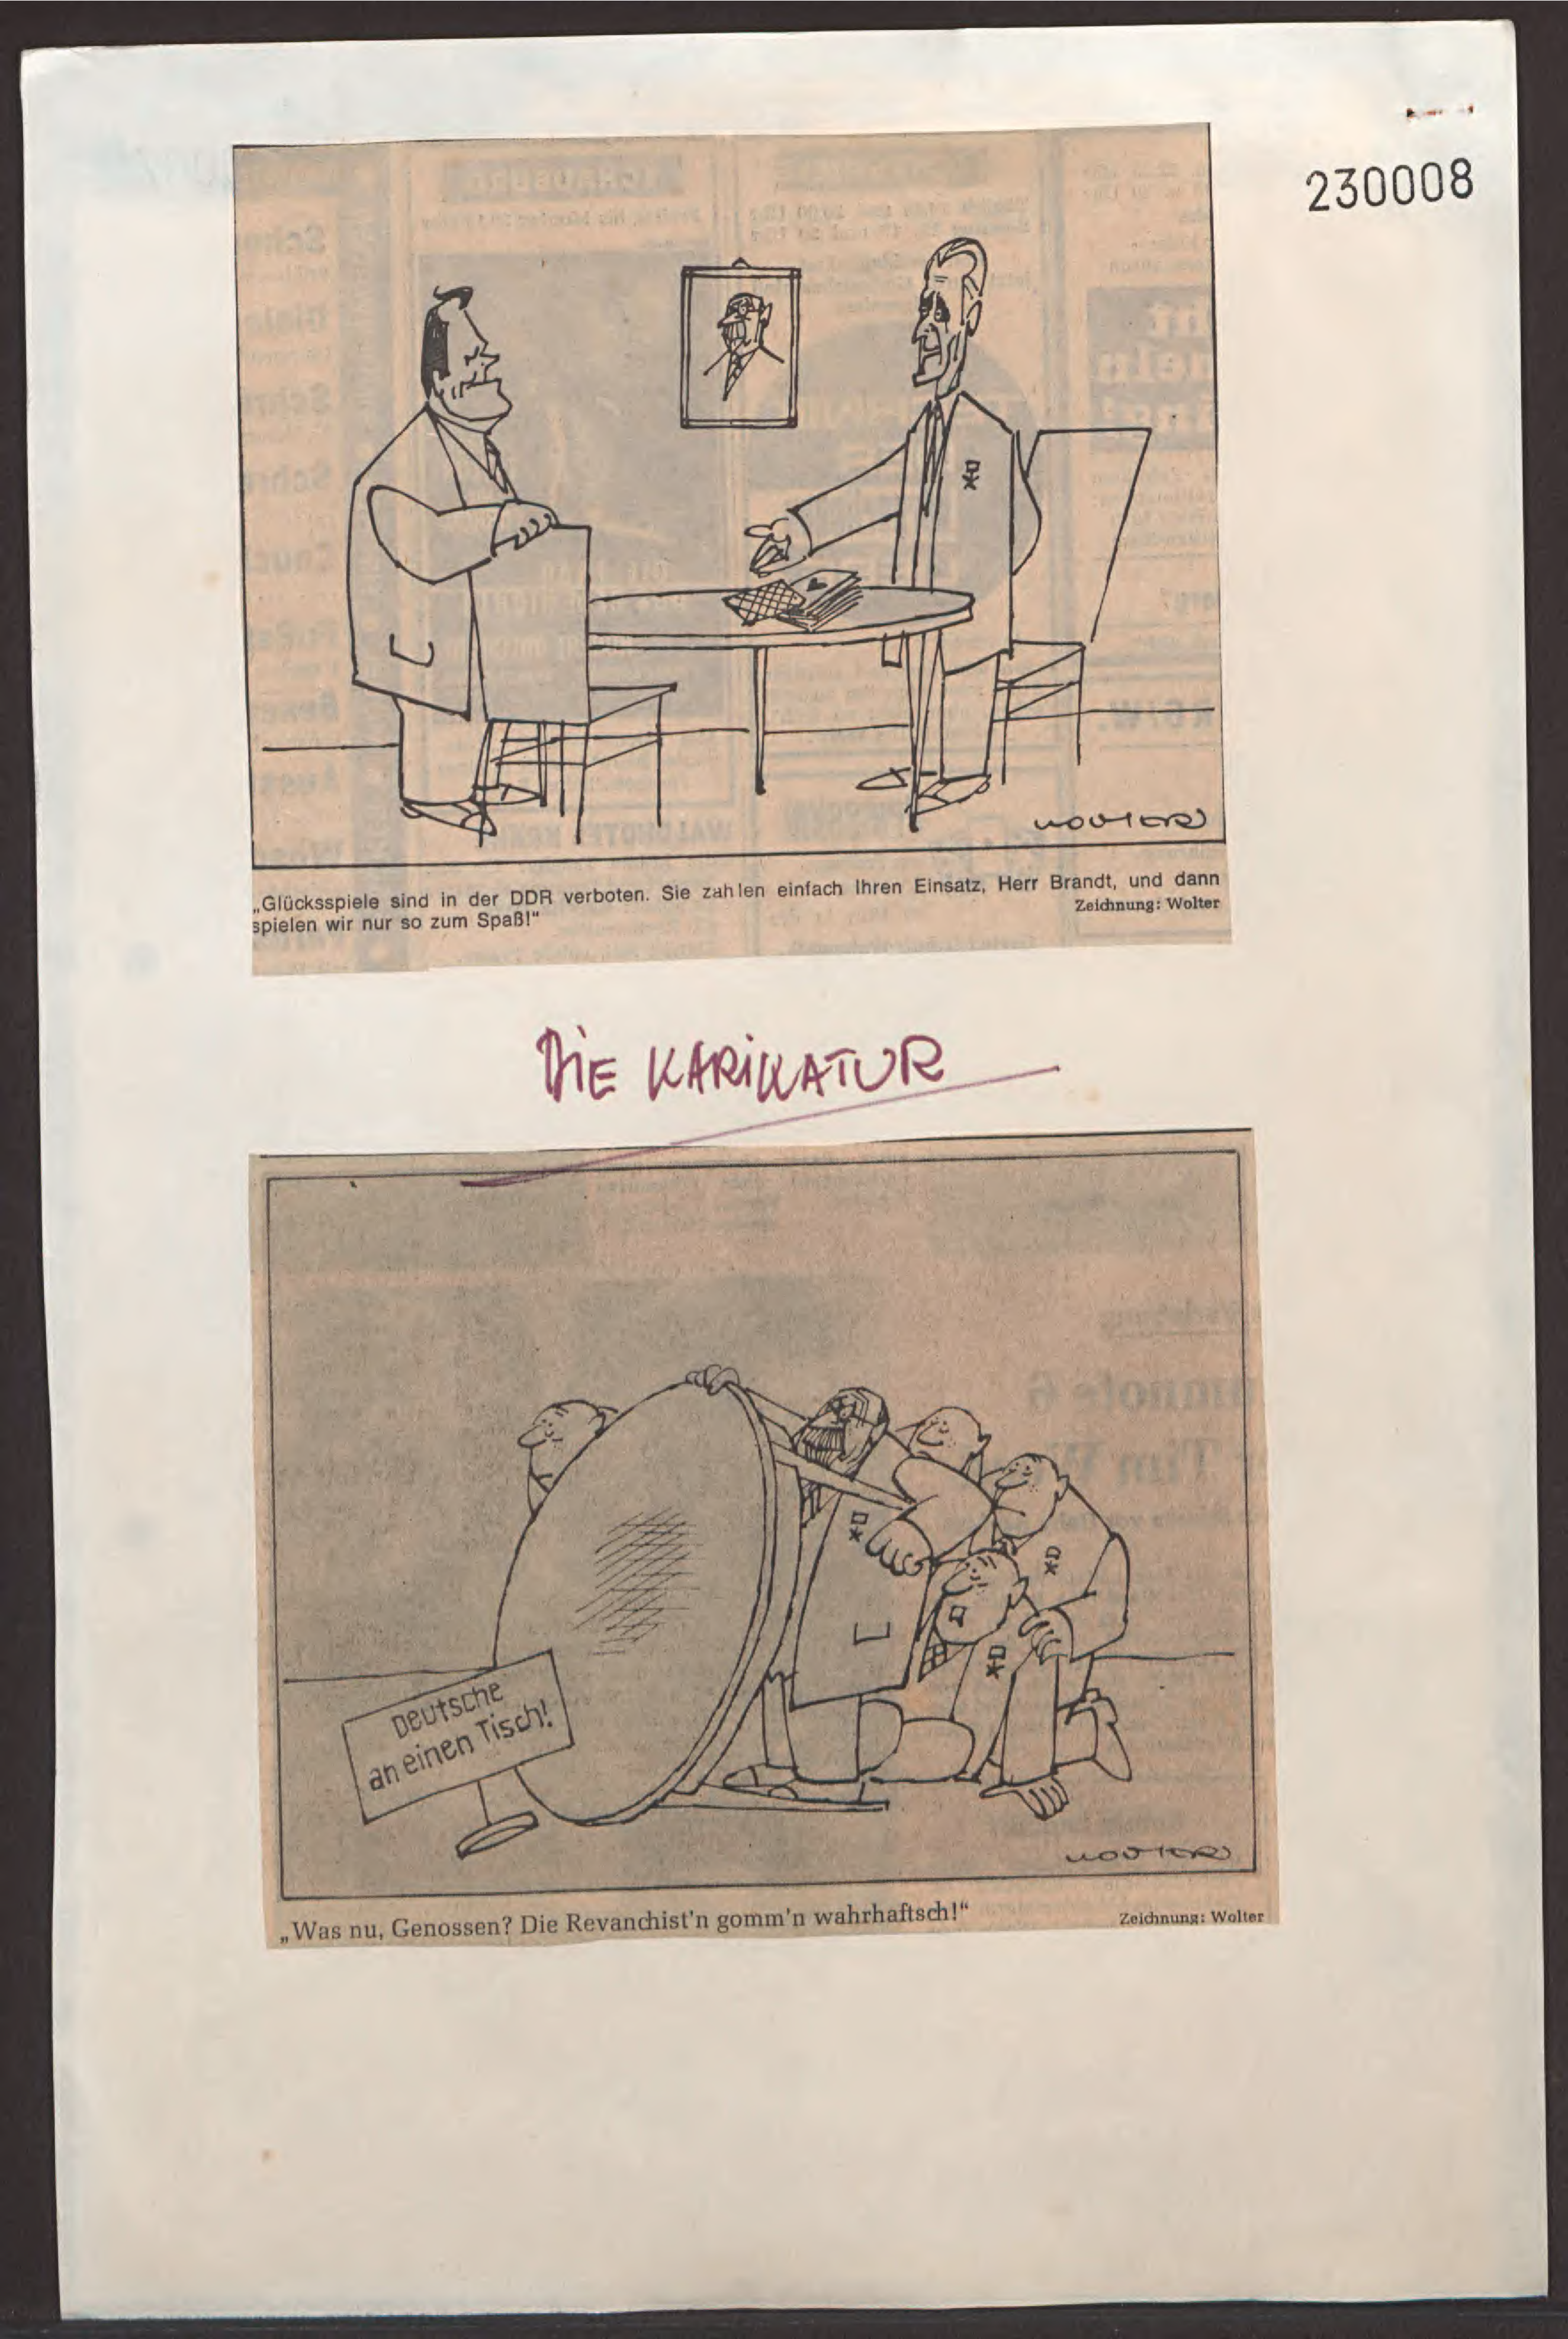 230008
WOLTER
„Glücksspiele sind in der DDR verboten. Sie zahlen einfach Ihren Einsatz, Herr Brandt, und dann
spielen wir nur so zum Spaß!“
Zeichnung: Wolter
DIE KARIKATUR
Deutsche
an einen Tisch!
WOLTER
„Was nu, Genossen? Die Revanchist'n gomm'n wahrhaftsch!“
Zeichnung: Wolter